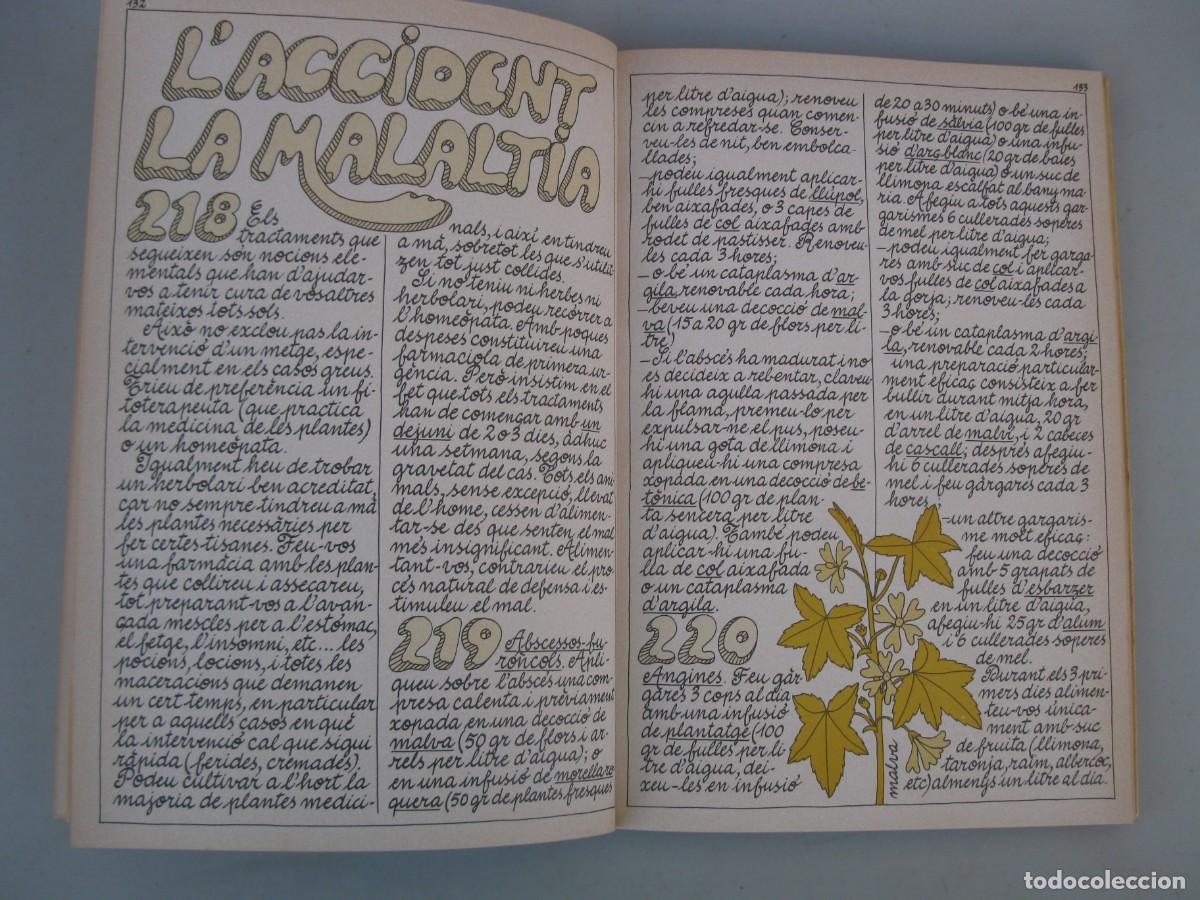 132
L'ACCIDENT
LA MALALTIA
218 Els
tractaments que
segueixen son nocions ele-
mentals que han d'ajudar-
vos a tenir cura de vosaltres
mateixos tots sols.
Això no exclou pas la in-
tervenció d'un metge, espe-
cialment en els casos greus.
Trieu de preferència un fi-
toterapeuta (que practica
la medicina de les plantes)
o un homeòpata.
Igualment heu de trobar
un herbolari ben acreditat,
car no sempre tindreu a mà
les plantes necessàries per
fer certes tisanes. Feu-vos
una farmàcia amb les plan-
tes que collireu i assecareu,
tot preparant-vos a l'avan-
çada mescles per a l'estómac,
el fetge, l'insomni, etc... les
pocions, locions, i totes les
maceracions que demanen
un cert temps, en particular
per a aquells casos en què
la intervenció cal que sigui
ràpida (ferides, cremades).
Podeu cultivar a l'hort la
majoria de plantes medici-
nals, i així en tindreu
a mà, sobretot les que s'utilit-
zen tot just collides.
Si no teniu ni herbes ni
herbolari, podeu recórrer a
l'homeòpata. Amb poques
despeses constituireu una
farmaciola de primera ur-
gència. Però insistim en el
fet que tots els tractaments
han de començar amb un
dejuni de 2 o 3 dies, àdhuc
una setmana, segons la
gravetat del cas. Tots els ani-
mals, sense excepció, llevat
de l'home, cessen d'alimen-
tar-se des que senten el mal
més insignificant. Alimen-
tant-vos, contrarieu el pro-
cés natural de defensa i es-
timuleu el mal.
219 Abscessos-fu-
roncols. Apli-
queu sobre l'abscés una com-
presa calenta i prèviament
xopada en una decocció de
malva (50 gr de flors i ar-
rels per litre d'aigua); o
en una infusió de morella ro-
quera (50 gr de plantes fresques
133
per litre d'aigua); renoveu
les compreses quan comen-
cin a refredar-se. Conser-
veu-les de nit, ben embolca-
llades;
-podeu igualment aplicar-
hi fulles fresques de llúpol,
ben aixafades, o 3 capes de
fulles de col aixafades amb
rodet de pastisser. Renoveu-
les cada 3 hores;
-o bé un cataplasma d'ar-
gila, renovable cada hora;
-beveu una decocció de mal-
va (15 a 20 gr de flors per li-
tre)
-Si l'abscés ha madurat i no
es decideix a rebentar, claveu-
hi una agulla passada per
la flama, premeu-lo per
expulsar-ne el pus, poseu-
hi una gota de llimona i
apliqueu-hi una compresa
xopada en una decocció de be-
tònica (100 gr de plan-
ta sencera per litre
d'aigua). També podeu
aplicar-hi una fu-
lla de col aixafada
o un cataplasma
d'argila.
220
Angines. Feu gàr-
gares 3 cops al dia
amb una infusió
de plantatge (100
gr de fulles per li-
tre d'aigua, dei-
xeu-les en infusió
de 20 a 30 minuts) o bé una in-
fusió de sàlvia (100 gr de fulles
per litre d'aigua) o una infu-
sió d'arç blanc (20 gr de baies
per litre d'aigua) o un suc de
llimona escalfat al bany ma-
ria. Afegiu a tots aquests gar-
garismes 6 cullerades soperes
de mel per litre d'aigua;
-podeu igualment fer gàrga-
res amb suc de col i aplicar-
vos fulles de col aixafades a
la gorja; renoveu-les cada
3 hores;
-o bé un cataplasma d'argi-
la, renovable cada 2 hores;
una preparació particular-
ment eficaç consisteix a fer
bullir durant mitja hora,
en un litre d'aigua, 20 gr
d'arrel de malví, i 2 cabeces
de cascall; després afegiu-
hi 6 cullerades soperes de
mel i feu gàrgares cada 3
hores;
-un altre gargaris-
me molt eficaç:
feu una decocció
amb 5 grapats de
fulles d'esbarzer
en un litre d'aigua,
afegiu-hi 25 gr d'alum
i 6 cullerades soperes
de mel.
Durant els 3 pri-
mers dies alimen-
teu-vos única-
ment amb suc
de fruita (llimona,
taronja, raïm, albercoc,
etc) almenys un litre al dia.
malva
todocoleccion